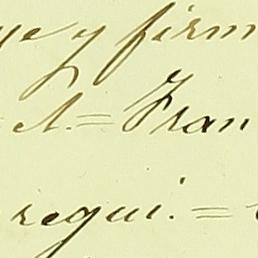 ye y firm
el.= Fran
regui.=